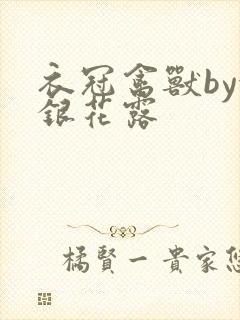 衣冠禽獸by
銀花露
橘賢一貴家悠